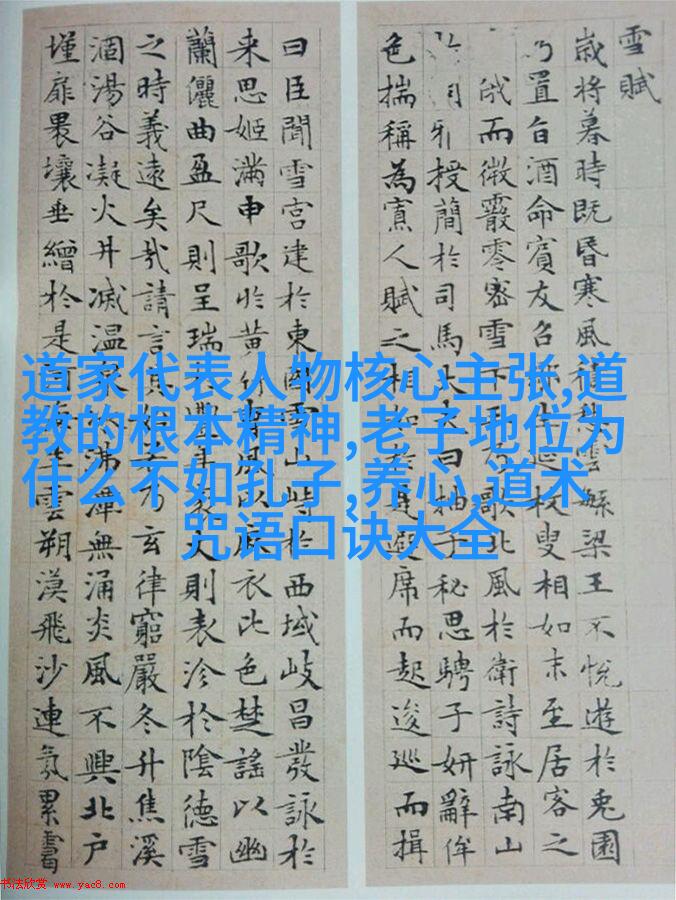 雪賦
歲將暮時既昏寒風積愁雲繁梁王不悅遊於兔園
乃置旨酒命賓友召鄒生延枚叟相如末至居客之
俄而微霰零密雪下王乃歌北風於衛詩詠南山
周雅授簡於司馬大夫曰抽子秘思騁子妍辭侔
色揣稱為寡人賦之相如於是避席而起逡巡而揖
曰臣聞雪宮建於東國雪山峙於西域岐昌發詠於
来思姬滿申歌於黃竹曹風以麻衣比色楚謠以幽
蘭儷曲盈尺則呈瑞於豐年袤丈則表沴於陰德雪
之時義遠矣哉請言其始若乃玄律窮嚴冬升焦溪
涸湯谷凝火井滅温泉冰沸潭無涌炎風不興北户
墐扉壤垂繒於是河海生雲朔漠飛沙連氛累靄
道家代表人物核心主张,道
教的根本精神,老子地位为
什么不如孔子,养心,道术
咒语口诀大全
书法欣赏 www.yac8.com